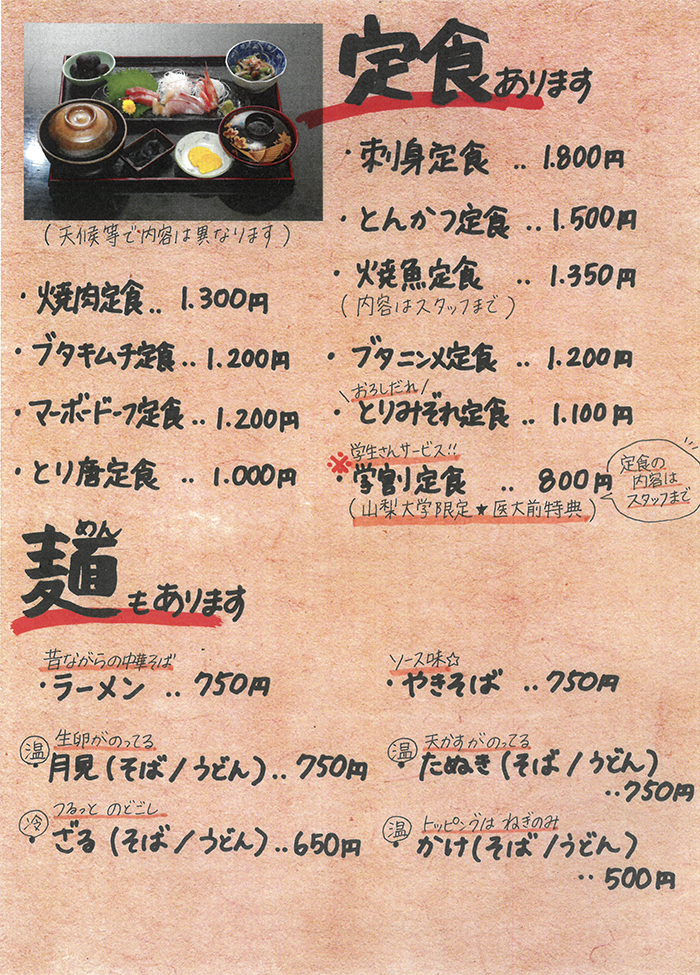 定食あります
・刺身定食 ‥ 1.800円
・とんかつ定食 ‥ 1.500円
・焼魚定食 ‥ 1.350円
(内容はスタッフまで)
・ブタニンメ定食 ‥ 1.200円
\おろしだれ/
・とりみぞれ定食 ‥ 1.100円
※学生さんサービス!!
・学割定食 ‥ 800円
(山梨大学限定★医大前特典)
定食の
内容は
スタッフまで
(天候等で内容は異なります)
・焼肉定食‥ 1.300円
・ブタキムチ定食‥ 1.200円
・マーボードーフ定食‥ 1.200円
・とり唐定食 ‥ 1.000円
めん
麺もあります
昔ながらの中華そば
・ラーメン ‥ 750円
ソース味☆
・やきそば ‥ 750円
温 生卵がのってる
・月見(そば/うどん)‥ 750円
温 天かすがのってる
・たぬき(そば/うどん)
‥750円
冷 つるっと のどごし
・ざる(そば/うどん)‥650円
温 トッピングは ねぎのみ
・かけ(そば/うどん)
‥ 500円